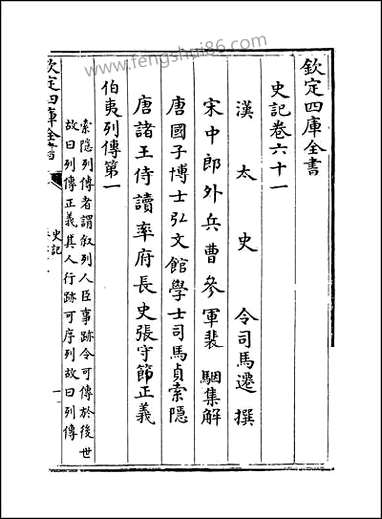 欽定四庫全書
史記卷六十一
漢太史令司馬遷撰
宋中郎外兵曹參軍裴駰集解
唐國子博士弘文館學士司馬貞索隱
唐諸王侍讀率府長史張守節正義
伯夷列傳第一
索隱列傳者謂叙列人臣事跡令可傳於後世
故曰列傳正義其人行跡可序列故曰列傳
欽定四庫全書
史記
一
www.fengshui86.com